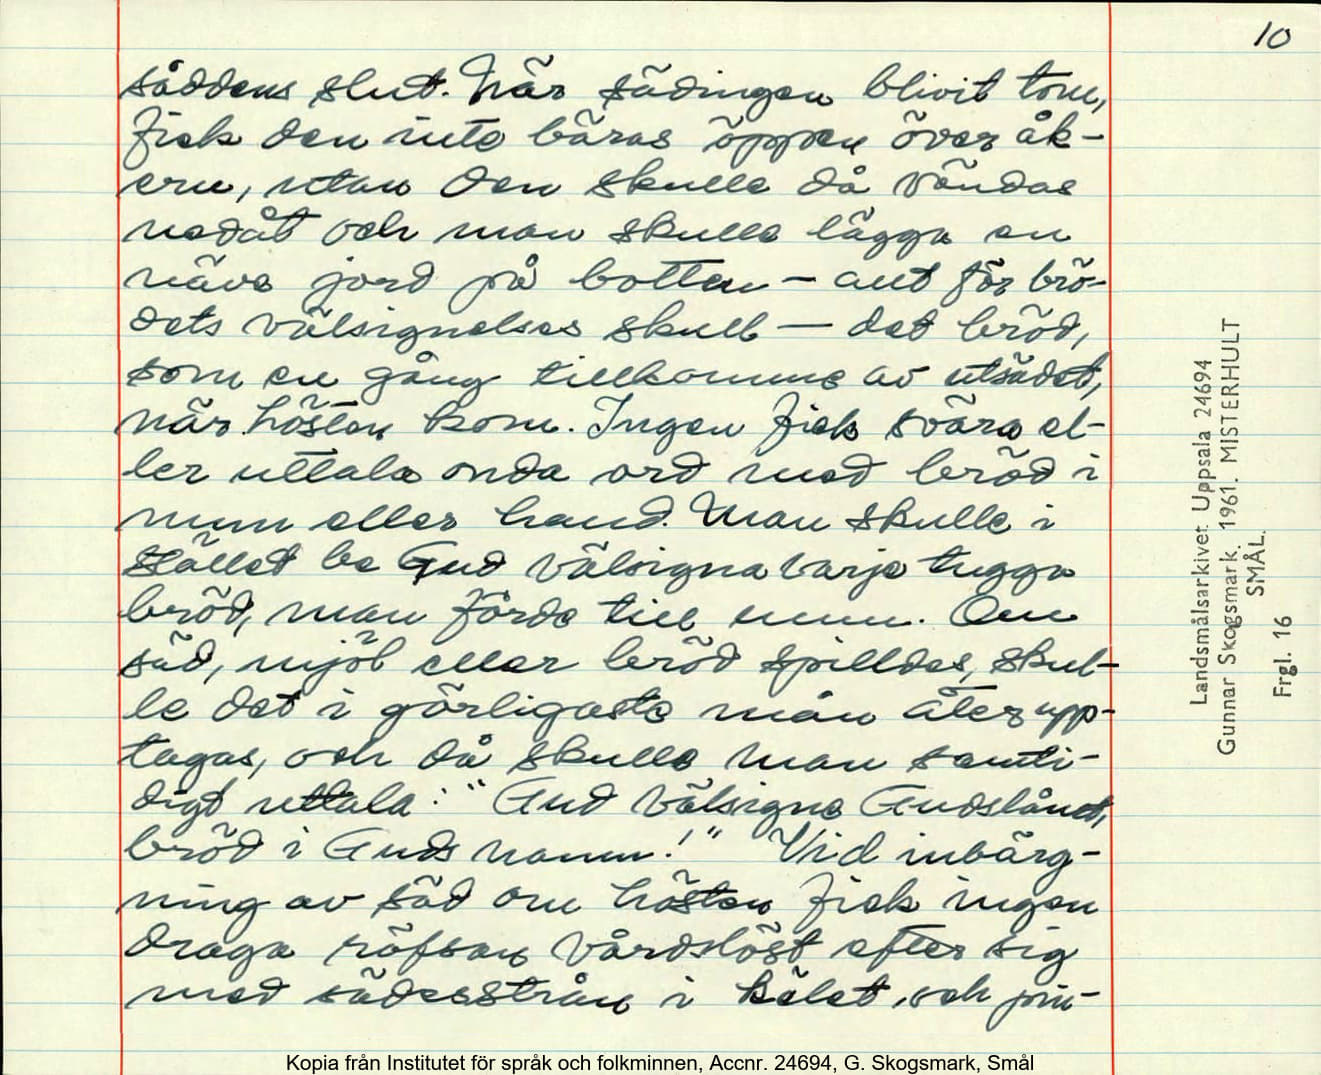 10
såddens slut. När sädingen blivit tom,
fick den inte bäras öppen över åk-
ern, utan den skulle då vändas
nedåt och man skulle lägga en
näve jord på botten – allt för brö-
dets välsignelses skull – det bröd,
som en gång tillkomme av utsädet,
när hösten kom. Ingen fick svära el-
ler uttala onda ord med bröd i
mun eller hand. Man skulle i
stället be Gud välsigna varje tugga
bröd, man förde till mun. Om
säd, mjöl eller bröd spilldes, skul-
le det i görligaste mån åter upp-
tagas, och då skulle man samti-
digt uttala: "Gud välsigne Gudslånet,
bröd i Guds namn!" Vid inbärg-
ning av säd om hösten fick ingen
draga räfsan vårdslöst efter sig
med sädesstrån i släpet, och
Landsmålsarkivet Uppsala 24694
Gunnar Skogsmark. 1961. MISTERHULT
SMÅL.
Frgl. 16
Kopia från Institutet för språk och folkminnen, Accnr. 24694, G. Skogsmark, Smål